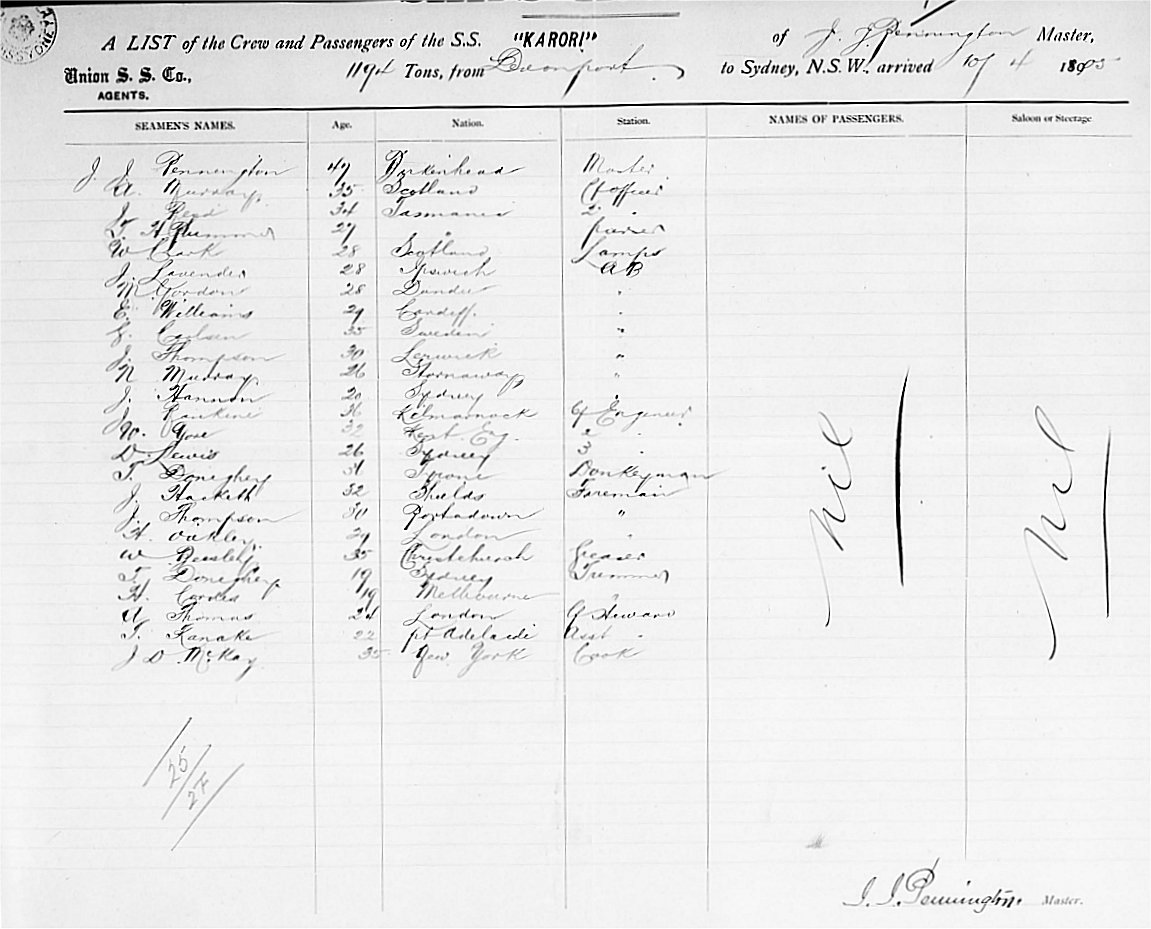 A LIST of the Crew and Passengers of the S.S. "KARORI" of J. J. Pennington Master,
Union S. S. Co., 1194 Tons, from Devonport to Sydney, N.S.W., arrived 10/4 1905
AGENTS.
SEAMEN'S NAMES. Age. Nation. Station. NAMES OF PASSENGERS. Saloon or Steerage
J. J. Pennington 47 Birkenhead Master
A. Murray 35 Scotland Cf officer
J. Read 34 Tasmania 2 "
T. H. Plummer 27 "
W Clark 28 Scotland Lamps
J. Lavender 28 Ipswich AB
N Gordon 28 Dundee "
E. Williams 29 Cardiff "
Carlson 35 Sweden "
J. Thompson 30 Lerwick "
N Murray 26 Stornaway "
J. Hannon 20 Sydney "
J Rankine 36 Kilmarnock Cf Engineer
W. Gore 32 Kent Eng. 2 "
D. Lewis 26 Sydney 3 "
T. Doneghey 31 Tyrone Donkeyman
J. Hackett 32 Shields Foreman
J. Thompson 30 Portadown "
H. Oakley 29 London "
W Beesley 35 Christchurch Greaser
T. Doneghey 19 Sydney Trimmer
H. Cordes 19 Melbourne "
A Thomas 24 London Cf Steward
T. Kanake 22 pt Adelaide Asst "
J D McKay 35 New York Cook
Nil Nil
25
27
J. J. Pennington. Master.